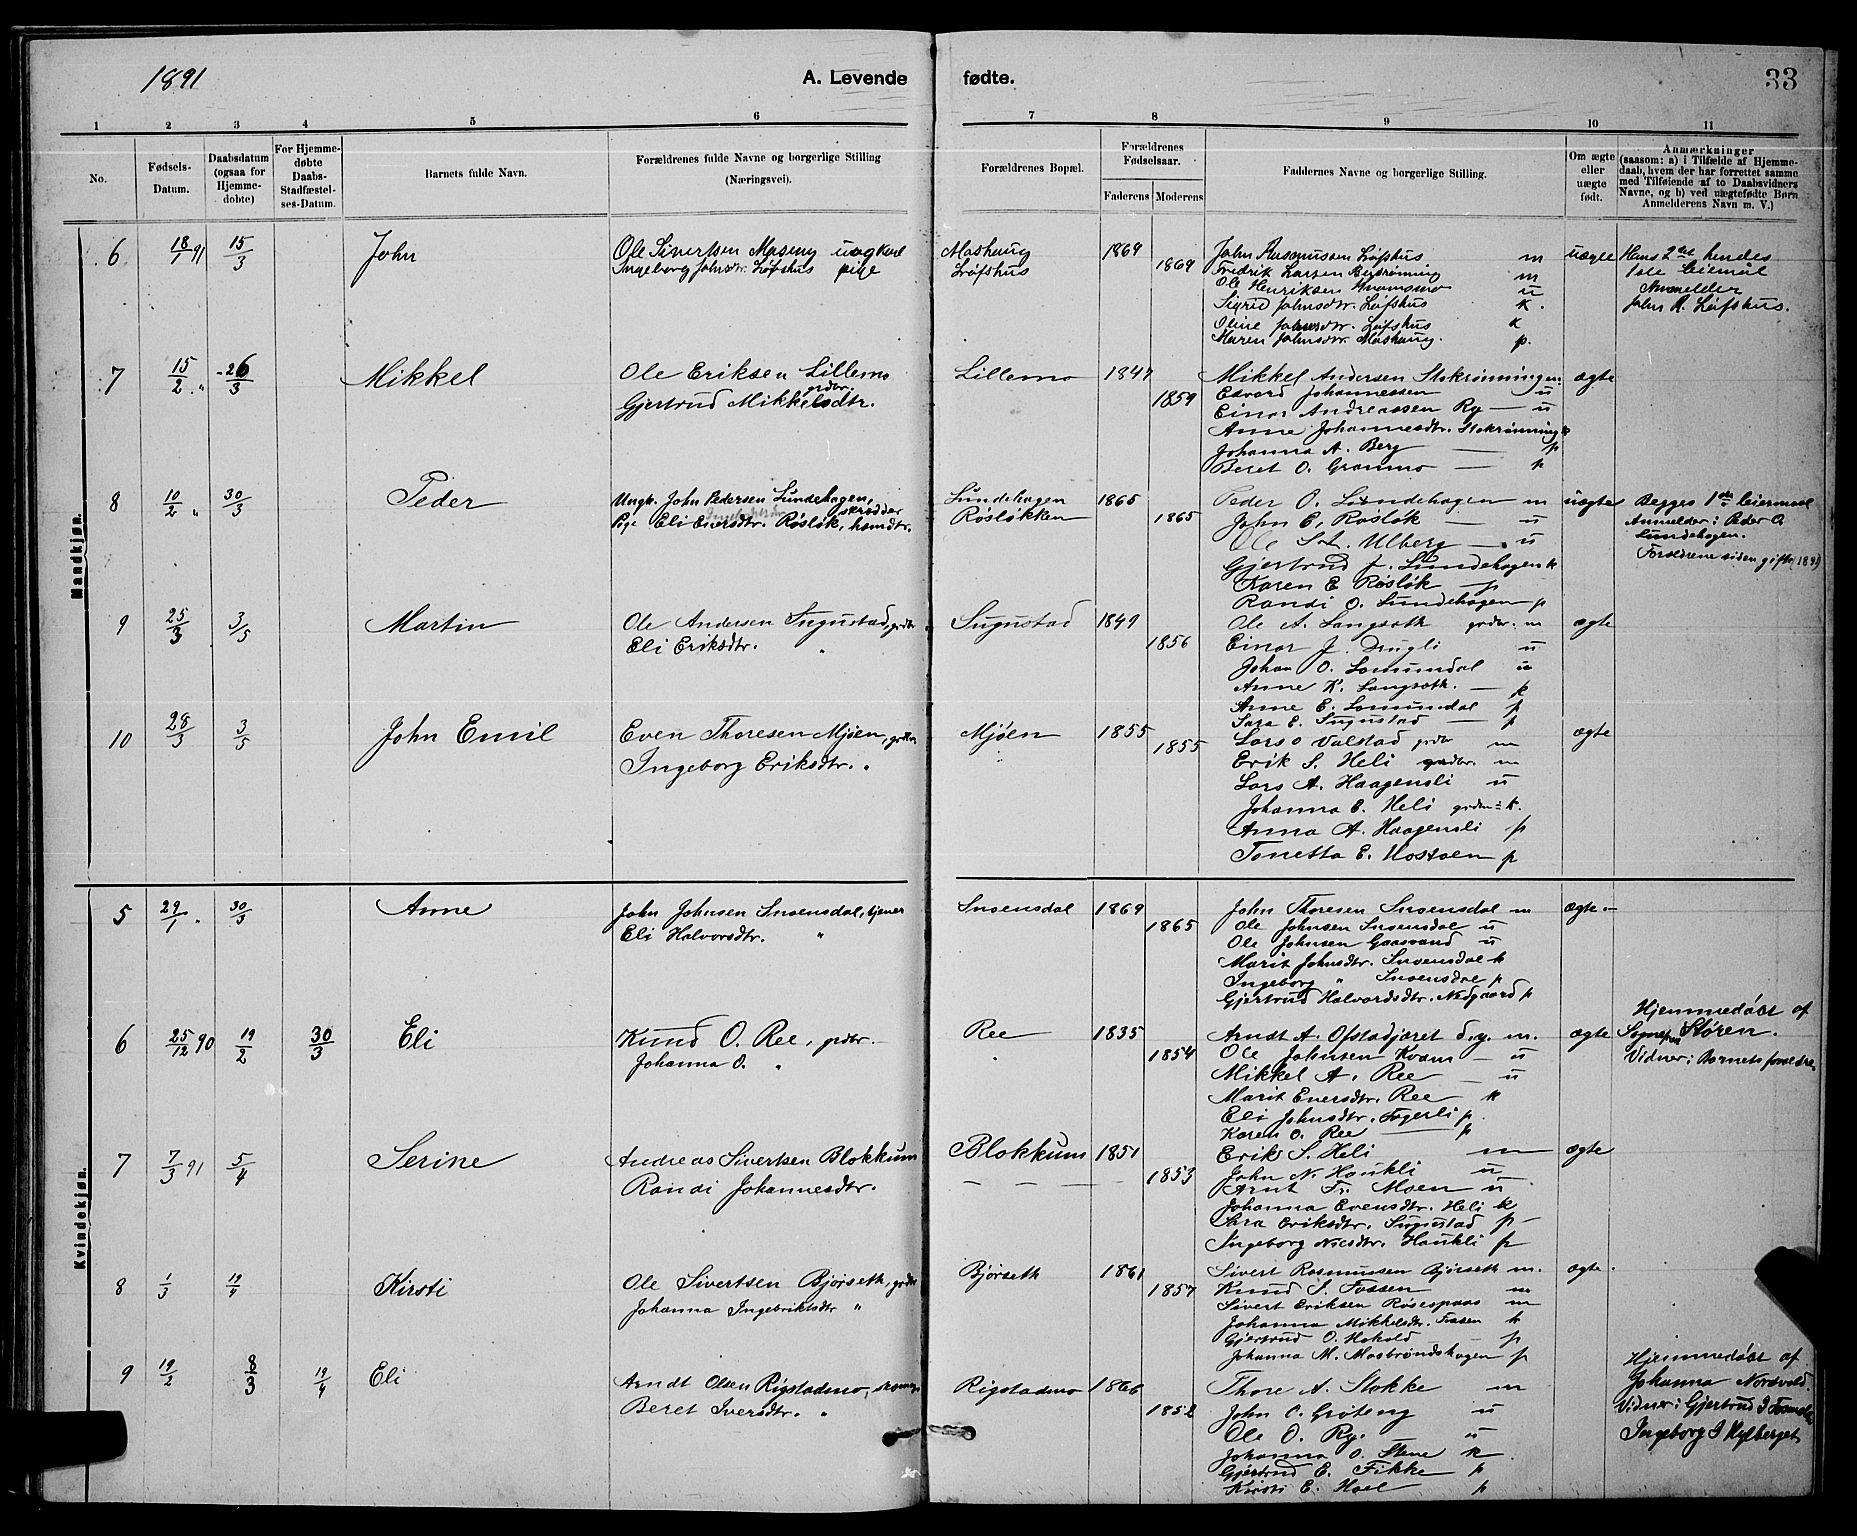 1891 A. Levende fødte. 33
1 2 3 4 5 6 7 8 9 10 11
No. Fødsels-Datum. Daabsdatum (ogsaa for Hjemme-døbte) For Hjemme-døbte Daabs-Stadfæstel-ses-Datum. Barnets fulde Navn. Forældrenes fulde Navne og borgerlige Stilling (Næringsvei). Forældrenes Bopæl. Forældrenes Fødselsaar. Faderens Moderens Faddernes Navne og borgerlige Stilling. Om ægte eller uægte født. Anmærkninger (saasom: a) i Tilfælde af Hjemme-daab, hvem der har forrettet samme med Tilføiende af to Daabsvidners Navne, og b) ved uægtefødte Børn Anmelderens Navn m. V.)
Mandkjøn.
6 18/1 91 15/3 John Ole Sivertsen Mashaug ungkarl Mashaug 1869 John Rasmussen Løfshus m uægte Hans 2det hendes
Ingeborg Johnsdtr. Løfshus pige Løfshus 1869 Fredrik Larsen m 1ste Leiemål
Ole Henriksen u Anmelder
Sigrid Johnsdtr. Løfshus k. John R. Løfshus.
Oline Johnsdtr. Løfshus k
Maren Johnsdtr. Mashaug. p.
7 15/2 " 26/3 Mikkel Ole Eriksen Lillemo Lillemo 1847 Mikkel Andersen Stokrønningen m. ægte
grdbr.
Gjertrud Mikkelsdtr. 1859 Edvard Johannessen u
Einar Andreassen Ry — u
Anne Johannesdtr. Stokrønning k
Johanna A. Berg — p
Beret O. Grammo — p
8 10/2 " 30/3 Peder Ungk. John Pedersen Lundehagen, skrædder Lundehagen 1865 Peder O. Lundehagen m uægte Begges 1ste leiermaal
Pige Eli Eversdtr. Røsløk, hamdtr. Røsløkken 1865 John E. Røsløk — u Anmelder: Peder O.
Ole S. Ulberg — u Lundehagen.
Gjertrud J. Lundehagen k Forældrene siden gifte (1891)
Karen E Røsløk p
Randi O. Lundehagen p
9 25/3 3/5 Martin Ole Andersen Sugustad, grdbr Sugustad 1849 Ole A. Langseth grdbr. m ægte
Eli Eriksdtr. " 1856 Einar J. Drugli u
Johan O. Lomundal u
Anne K. Langseth. — k
Anne E. Lomundal p
Sara E. Sugustad — p
10 28/3 3/5 John Emil Even Thoresen Mjøen, grdbr Mjøen 1855 Lars O Valstad grdbr m ægte
Ingeborg Eriksdtr. " " 1855 Erik S. Heli grdbr. m
Lars A. Haagensli u
Johanna E. Heli k.
Anna A. Haagensli p
Tonetta E. Hostoen p
Kvindekjøn.
5 29/1 " 30/3 Anne John Johnsen Snoensdal, tjener Snoensdal 1869 John Thoresen Snoensdal m ægte.
Eli Halvorsdtr. " 1865 Ole Johnsen Snoensdal u
Ole Johnsen Gaasvand u
Marit Johnsdtr. Snoensdal k
Ingeborg " Snoensdal p
Gjertrud Halvordsdtr. Nedgaard p
6 25/12 90 19/2 30/3 Eli Knud O. Ree, grdbr. Ree 1835 Arndt A. Ofstadjaret m. ægte Hjemmedøbt af
Johanna O. " " 1854 Ole Johnsen Kvam — u Sognepr. Støren.
Mikkel A. Ree — u Vidner: Barnets forældre
Marit Eversdtr. Ree k
Eli Johnsdtr. Fagerli p.
Karen O. Ree — p
7 7/3 91 5/4 Serine Andreas Sivertsen Blokkum Blokkum 1851 Erik S. Heli m ægte
Randi Johannesdtr. — 1853 John N. Haukli u
Arnt Fr. Moen u
Johanna Evensdtr. Heli k
Sara Eriksdtr. Sugustad p
Ingeborg Nilsdtr. Haukli p
8 1/3 19/4 Kirsti Ole Sivertsen Bjørseth, grdbr Bjørseth 1861 Sivert Rasmussen Bjørseth m. ægte.
Johanna Ingebriktsdtr " 1857 Knud S. Fossen m
Sivert Eriksen Røsespaas m
Johanna Mikkelsdtr. Fossen k
Gjertrud O. Hokold — p
Johanna M. Mosbrøndshagen p
9 19/2 8/3 19/4 Eli Arndt Olsen Rigstadmo, Rigstadmo 1866 Thore A. Stokke m Hjemmedøbt af
Beret Iversdtr. " 1852 John O. Grøteng u Johanna Nordvold.
Ole O. Ry. u Vidner: Gjertrud J
Johanna O. Stene k Ingeborg J Hylberget
Gjertrud E. Fikke p
Kirsti E. Hoel p